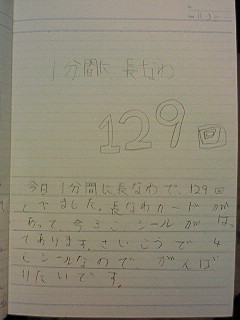 1分間に長なわ
129回
今日1分間に長なわで、129回
とべました。長なわカードが
あって、今そこシールがはっ
てあります。さいこうで4
シールなので、がんば
りたいです。